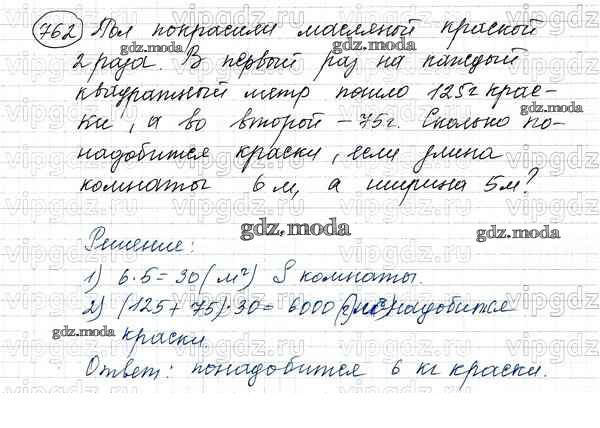 762 Пол покрасили масляной краской
2 раза. В первый раз на каждый
квадратный метр пошло 125г крас-
ки, а во второй - 75г. Сколько по-
надобится краски, если длина
комнаты 6 м, а ширина 5м?
gdz.moda
Решение:
1) 6·5=30(м²) S комнаты.
2) (125+75)·30=6000(г) надобится
краски.
Ответ: понадобится 6 кг краски.